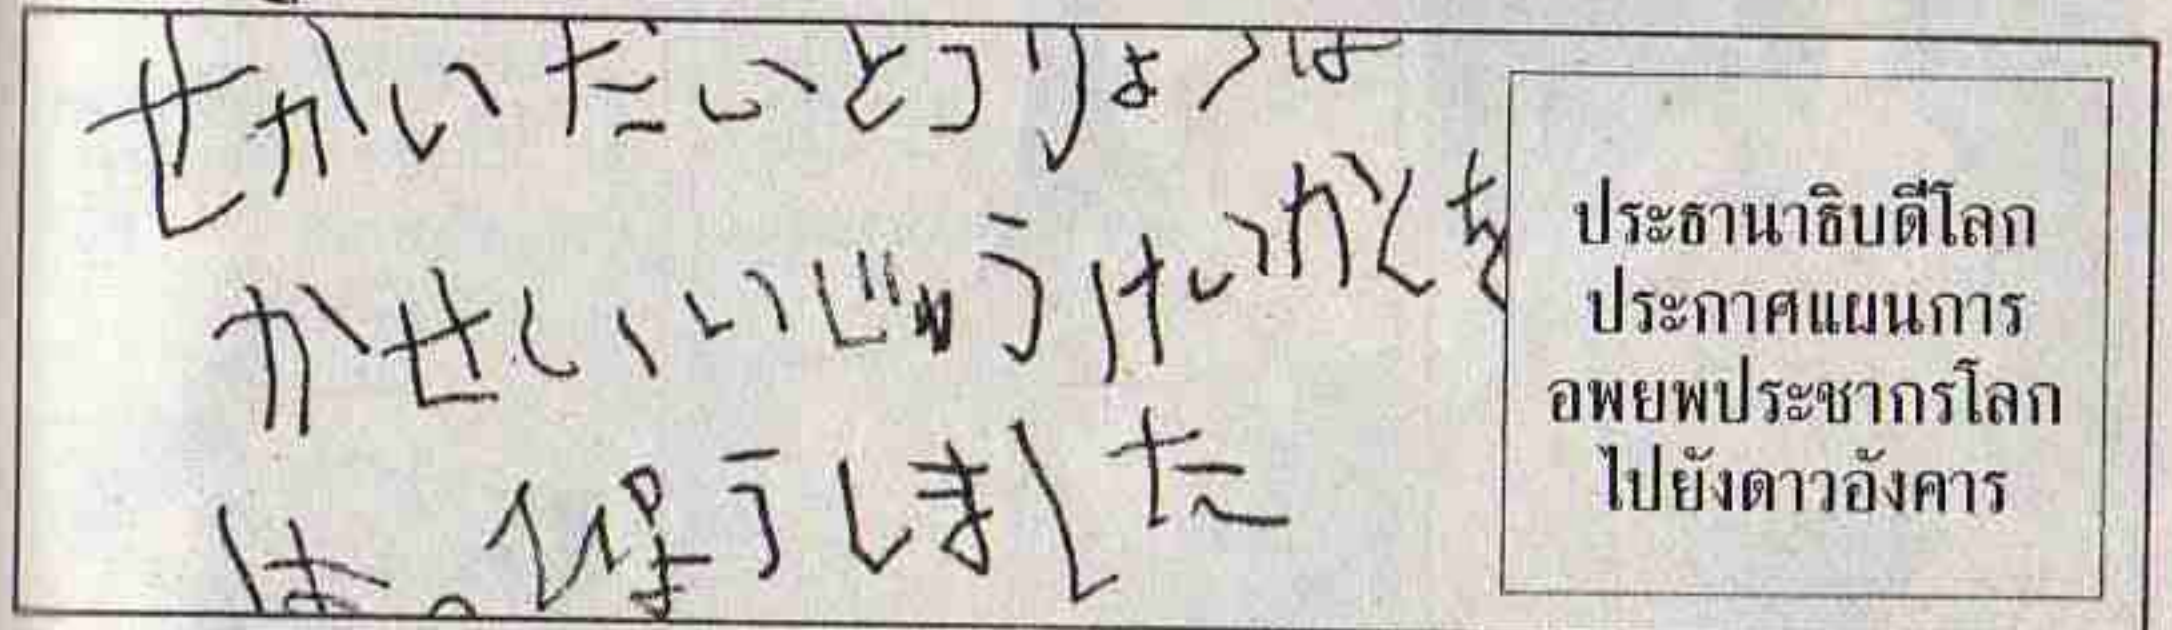 せかいだいとうりょうは
かせいいじゅうけいかくを
はっぴょうしました
ประธานาธิบดีโลก
ประกาศแผนการ
อพยพประชากรโลก
ไปยังดาวอังคาร